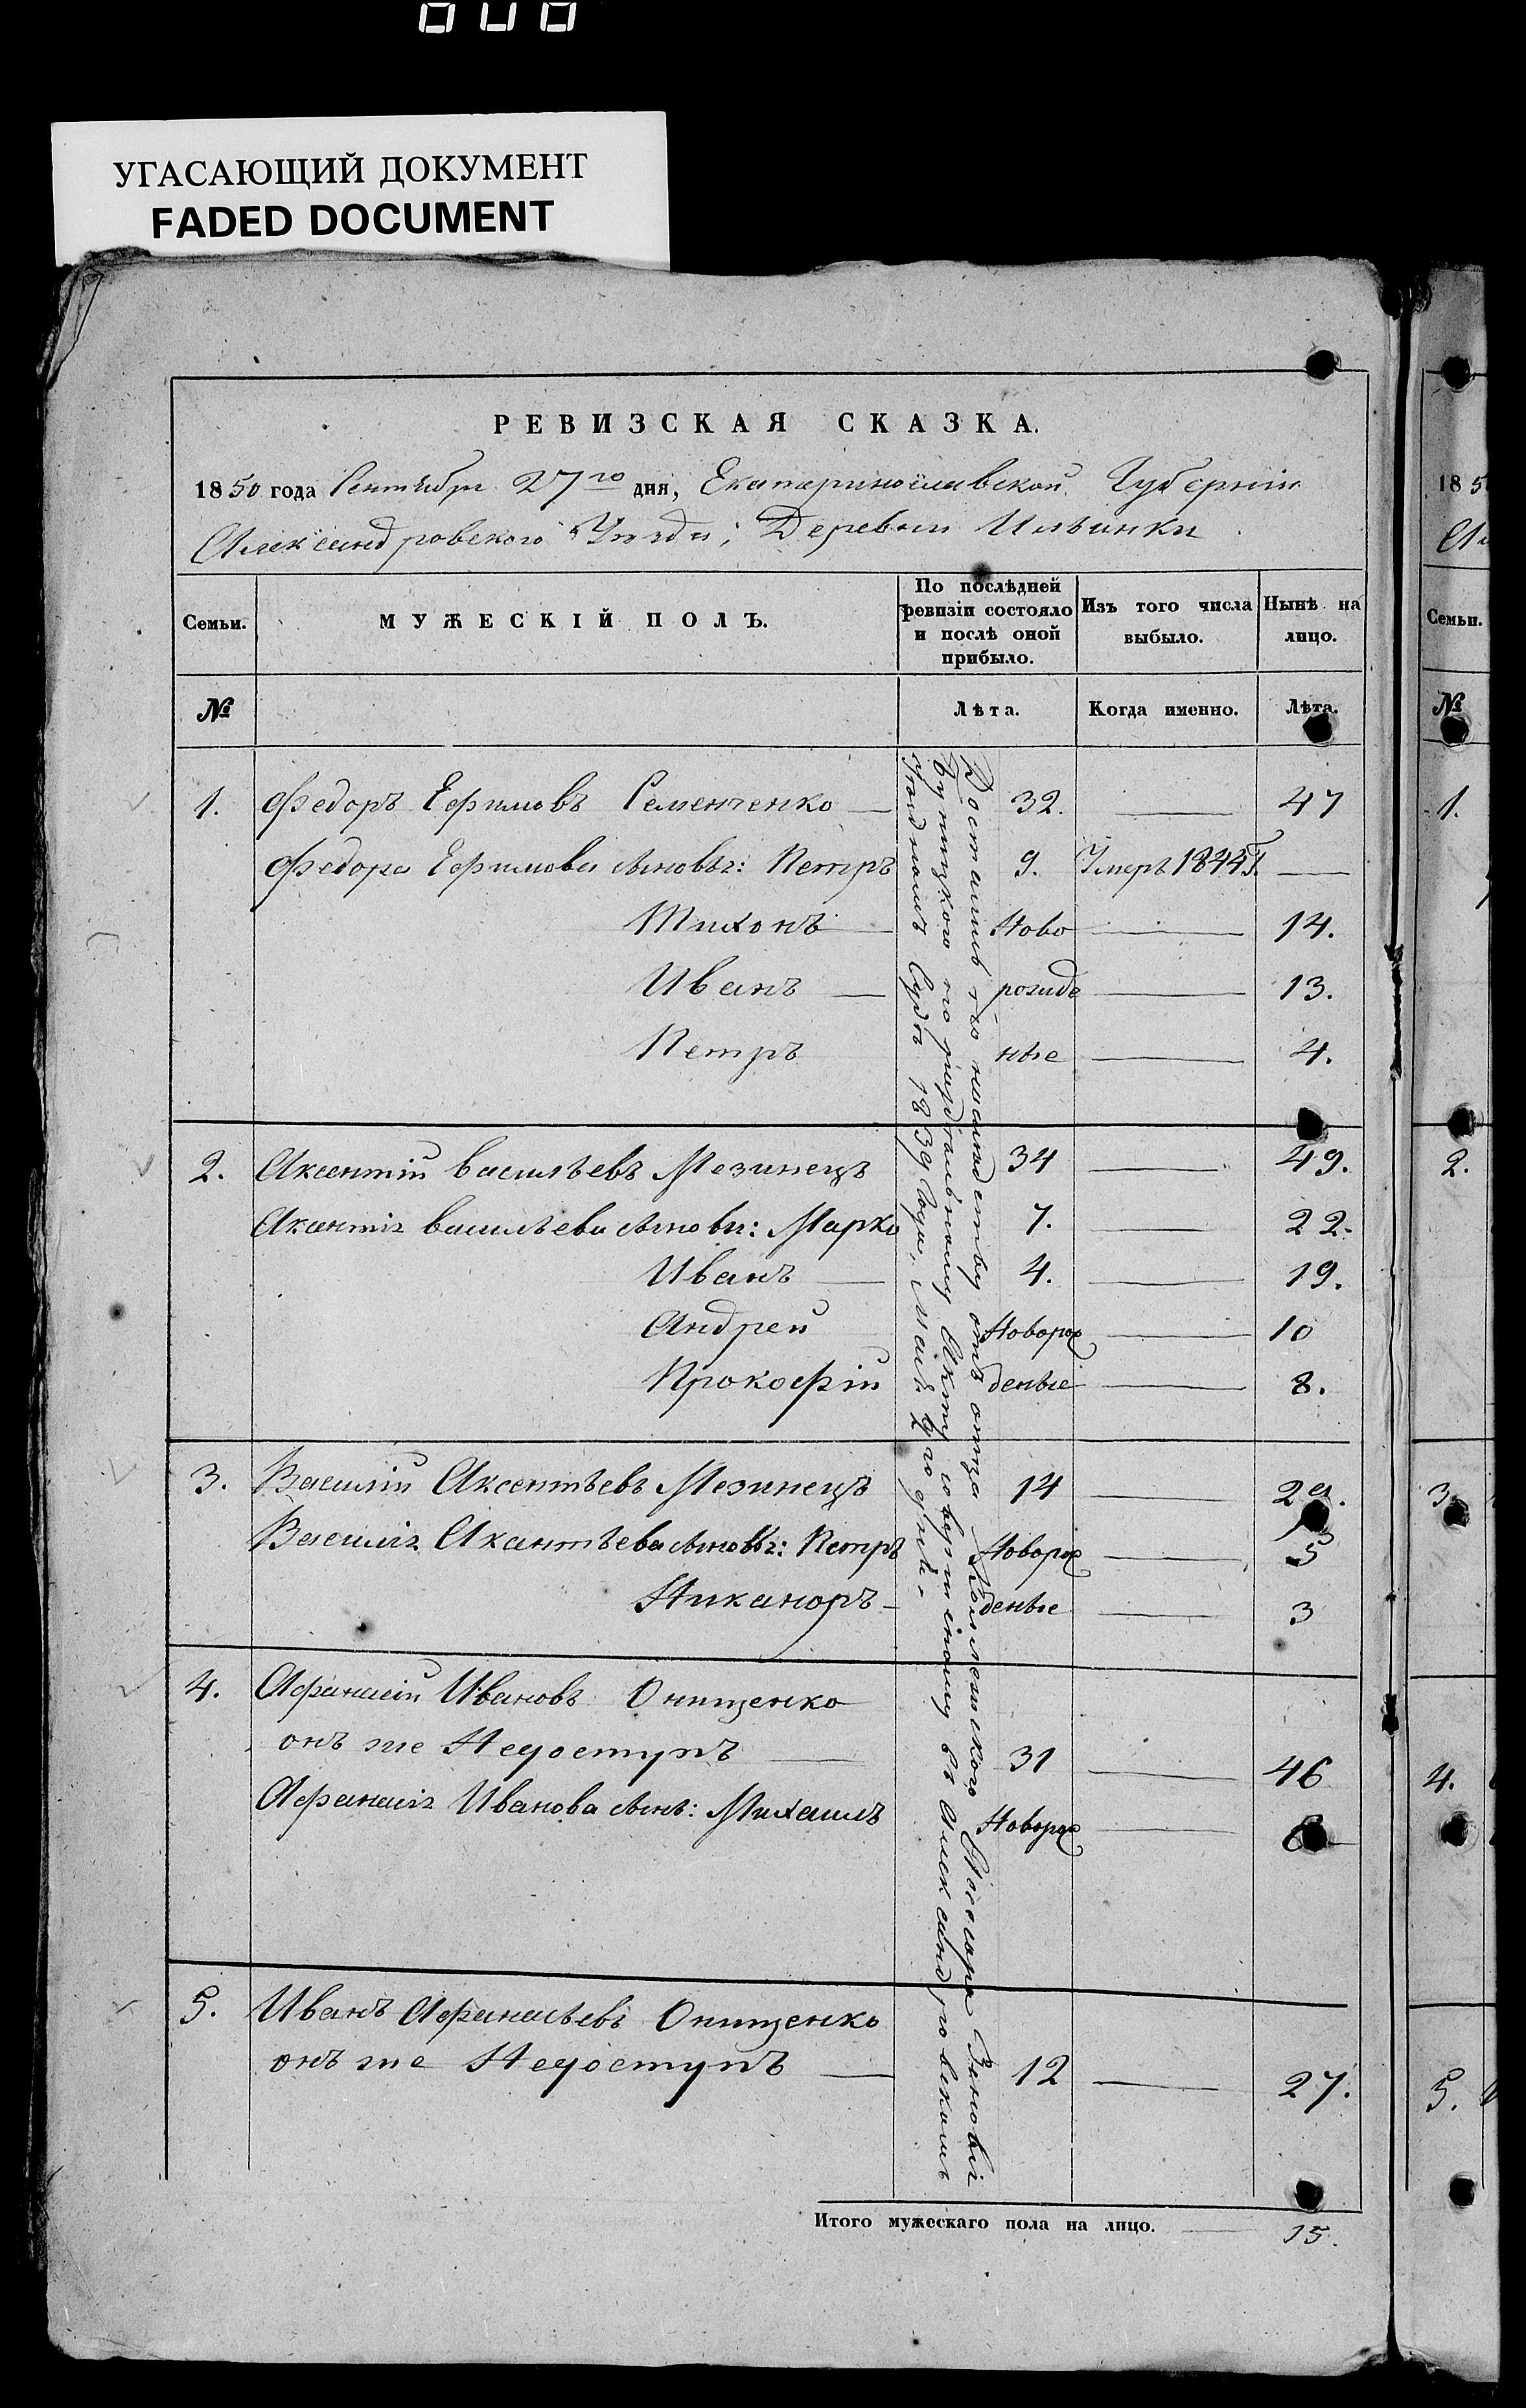 УГАСАЮЩИЙ ДОКУМЕНТ
FADED DOCUMENT
РЕВИЗСКАЯ СКАЗКА.
1850 года Сентября 27го дня, Екатеринославской Губернiи
Александровского Уѣзда, Деревни Ильинки
Семьи. МУЖЕСКIЙ ПОЛЪ. По послѣдней ревизiи состояло и послѣ оной прибыло. Изъ того числа выбыло. Нынѣ на лицо.
№ Лѣта. Когда именно. Лѣта.
1. Федоръ Ефимовъ Семенченко 32. 47
Федора Ефимова сыновья: Петръ 9. Умеръ 1844 г.
Тихонъ Ново 14.
Иванъ рожде 13.
Петръ ные 4.
2. Аксентiй Васильевъ Мезинецъ 34 49.
Аксентiя Васильева сыновья: Марко 7. 22.
Иванъ 4. 19.
Андрей Новорож 10
Прокофiй деные 8.
3. Василiй Аксентьевъ Мезинецъ 14 29.
Василiя Аксентьева сыновья: Петръ Новорож 5
Никаноръ деные 3
4. Афанасiй Ивановъ Онищенко
онъ же Недоступъ 31 46
Афанасiя Иванова сынъ: Михаилъ Новорож
5. Иванъ Афанасьевъ Онищенко
онъ же Недоступъ 12 27.
Достались по наслѣдству отъ отца Коллежского Ассесора Зеновiя
по раздѣльному Акту совершенному въ Александровскомъ
Уѣздномъ Судѣ 1839 Года, Мая дня.
Итого мужескаго пола на лицо. 15.
185
Семьи.
№
1.
2.
3.
4.
5.